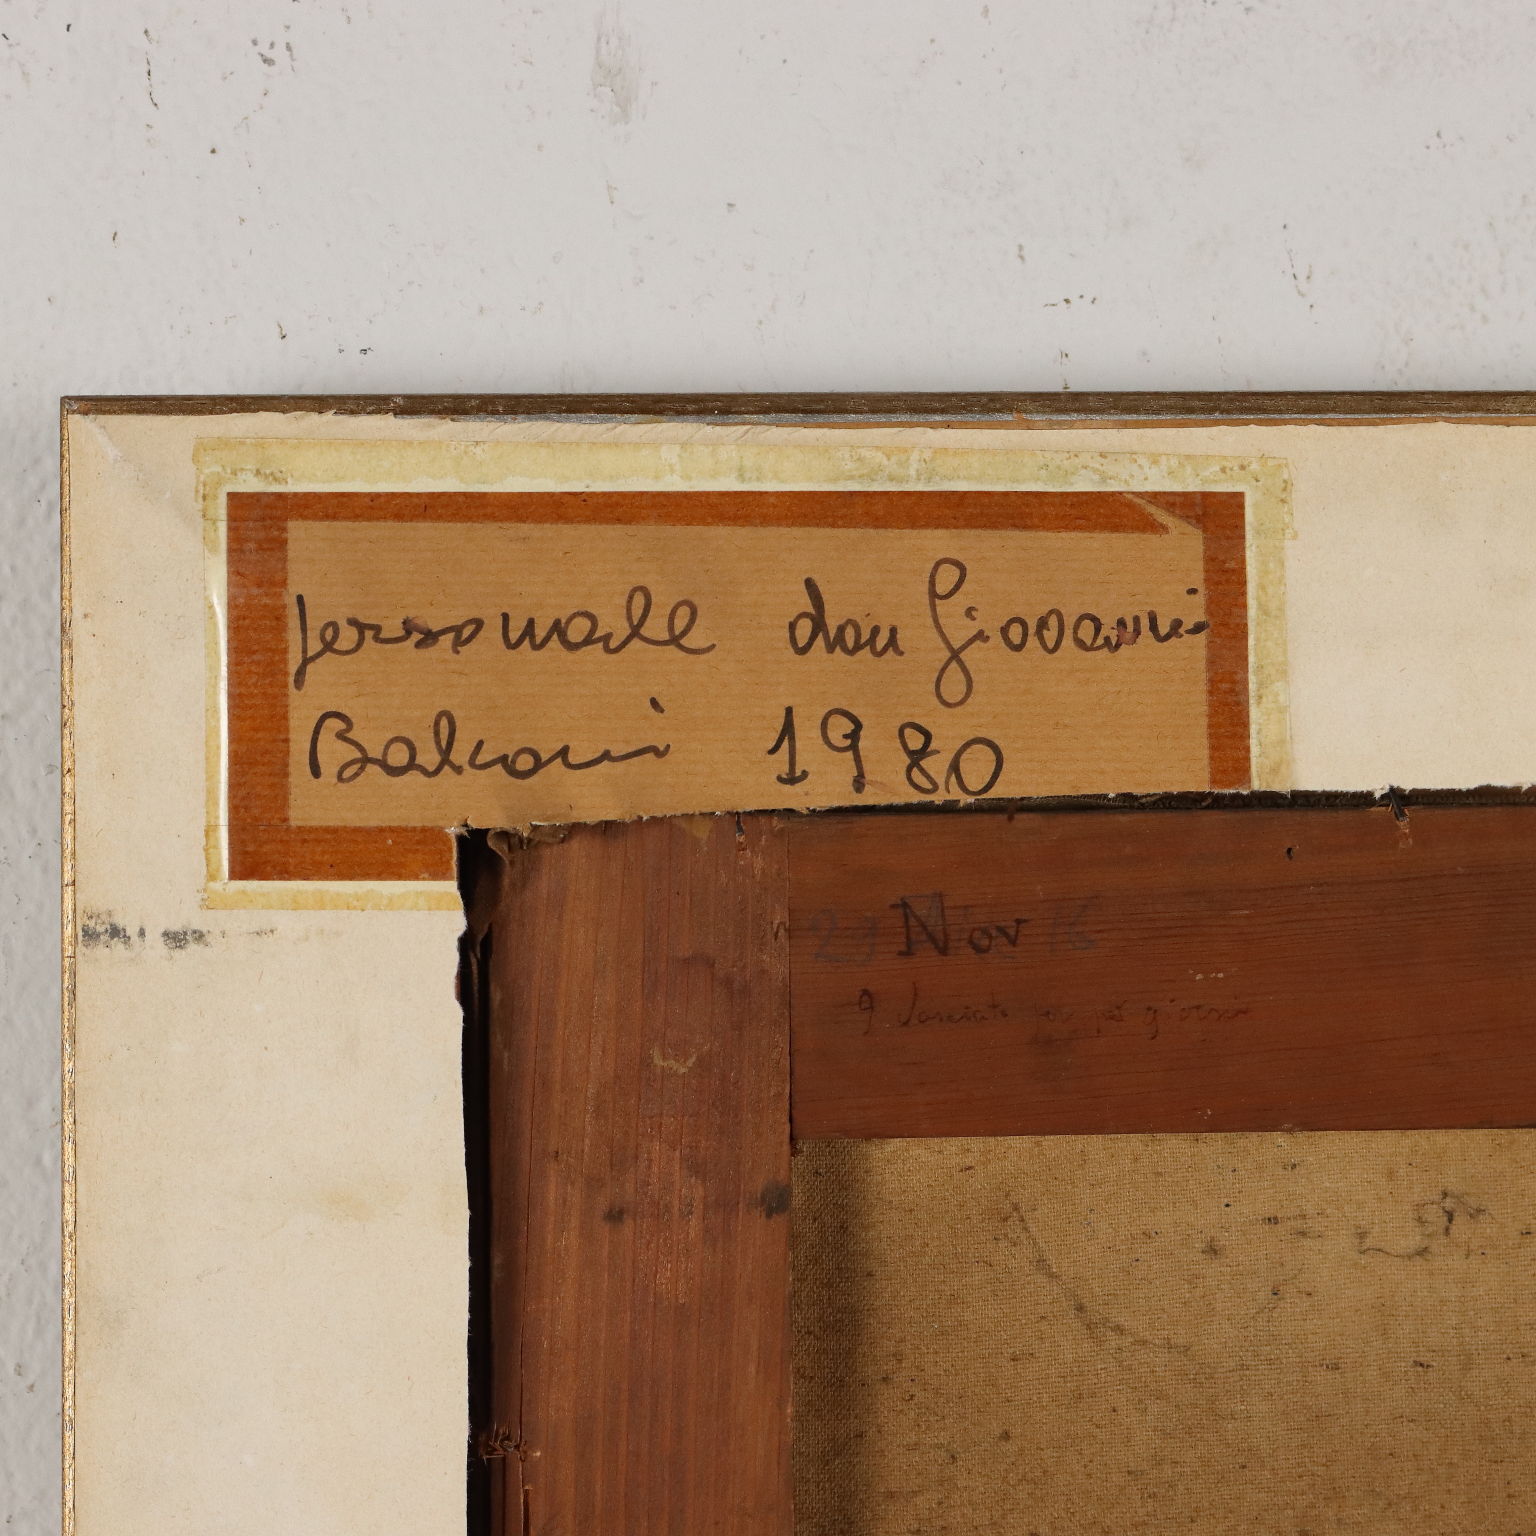 personale don Giovanni
Balconi 1980
29 Nov 16
9 lasciato per giorni